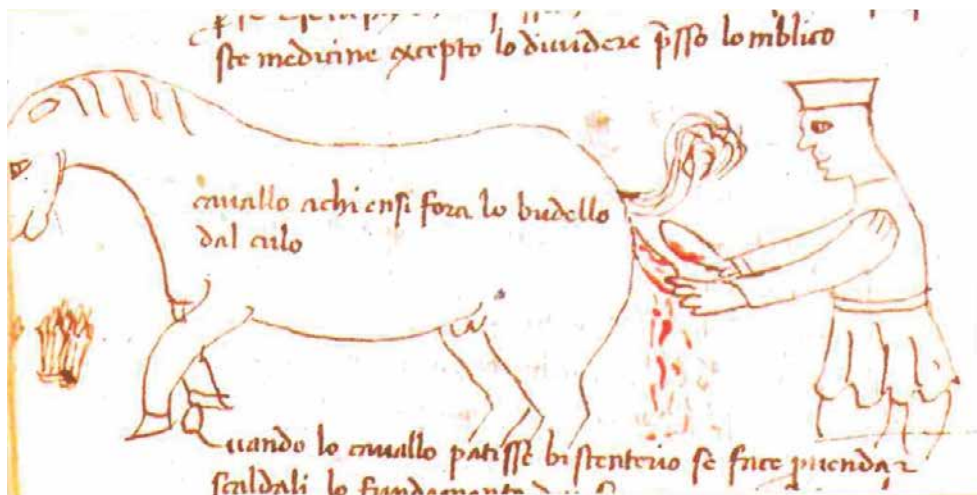 ste medicine excepto lo dividere presso lomblico
cavallo achi ensi fora lo budello
dal culo
Quando lo cavallo patisse bistenterio se face
scaldali lo fundamento